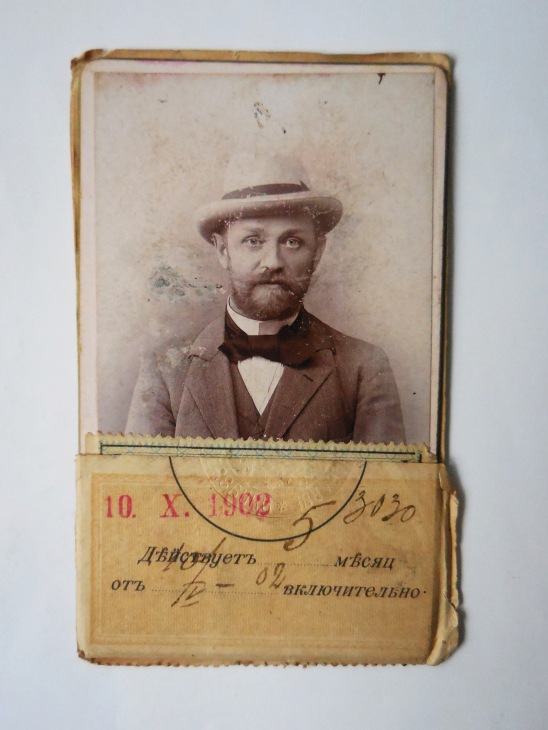 10. X. 1902
5 3030
Дѣйствуетъ мѣсяц
отъ IV — 02 включительно